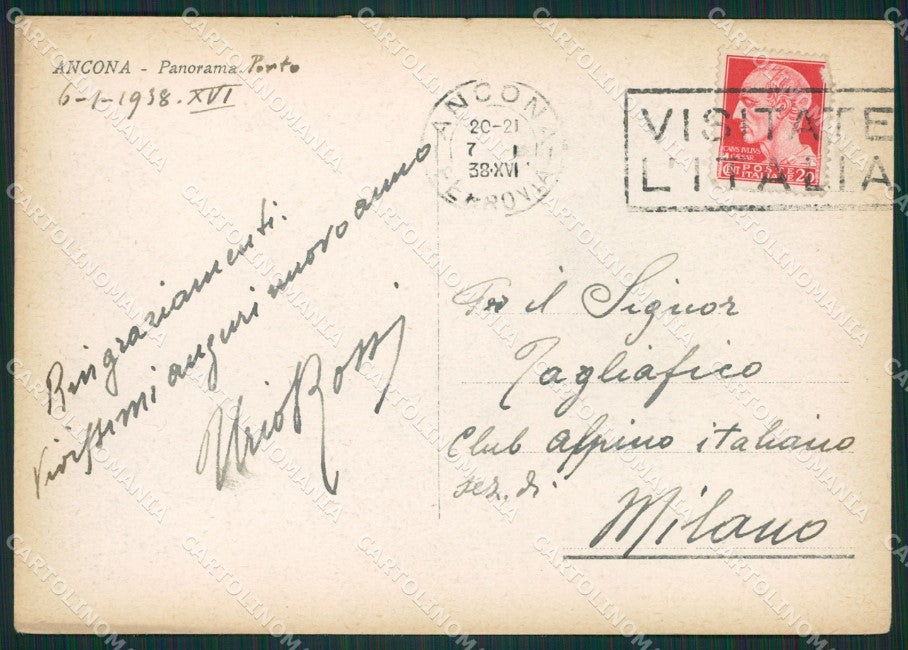 ANCONA - Panorama Porto
6-1-1938.XVI
ANCONA
20-21
7 1
38·XVI
FERROVIA
VISITATE
L'ITALIA
CAIVS IVLIVS
CAESAR
CENT POSTE 20
ITALIANE
Ringraziamenti.
Vivissimi auguri nuovo anno
Rossi
Per il Signor
Tagliafico
Club alpino italiano
sez. di
Milano
CARTOLINOMANIA